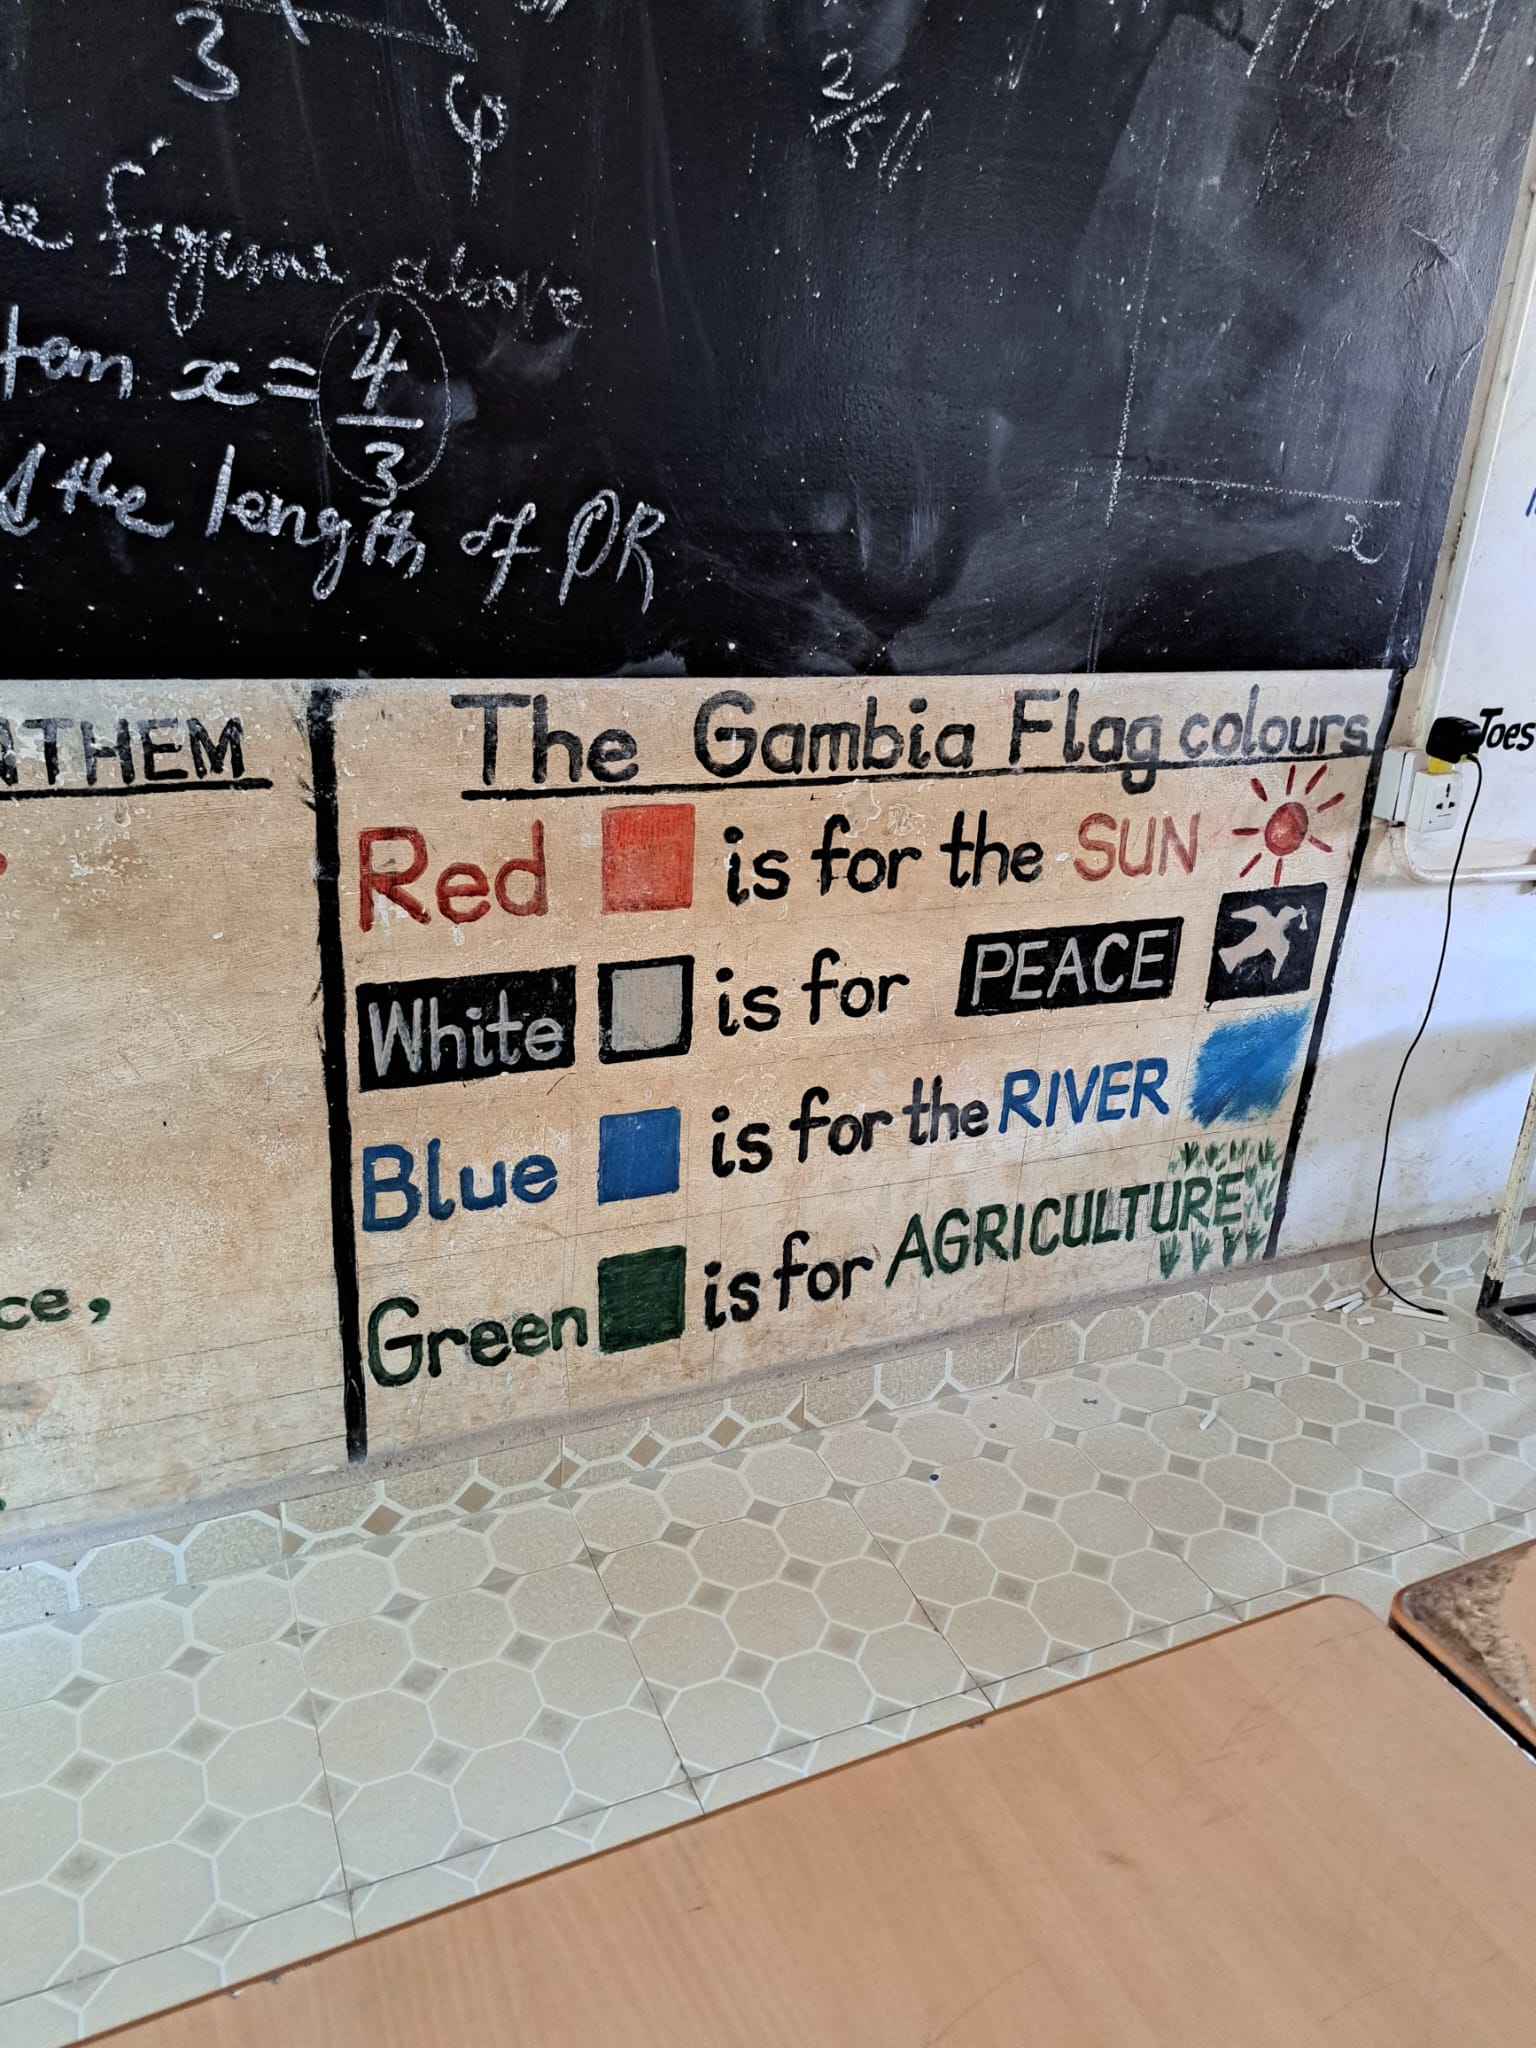 3
φ
2/5//
figure above
x = 4/3
the length of PR
x
The Gambia Flag colours
Red is for the SUN
White is for PEACE
Blue is for the RIVER
Green is for AGRICULTURE
Toes